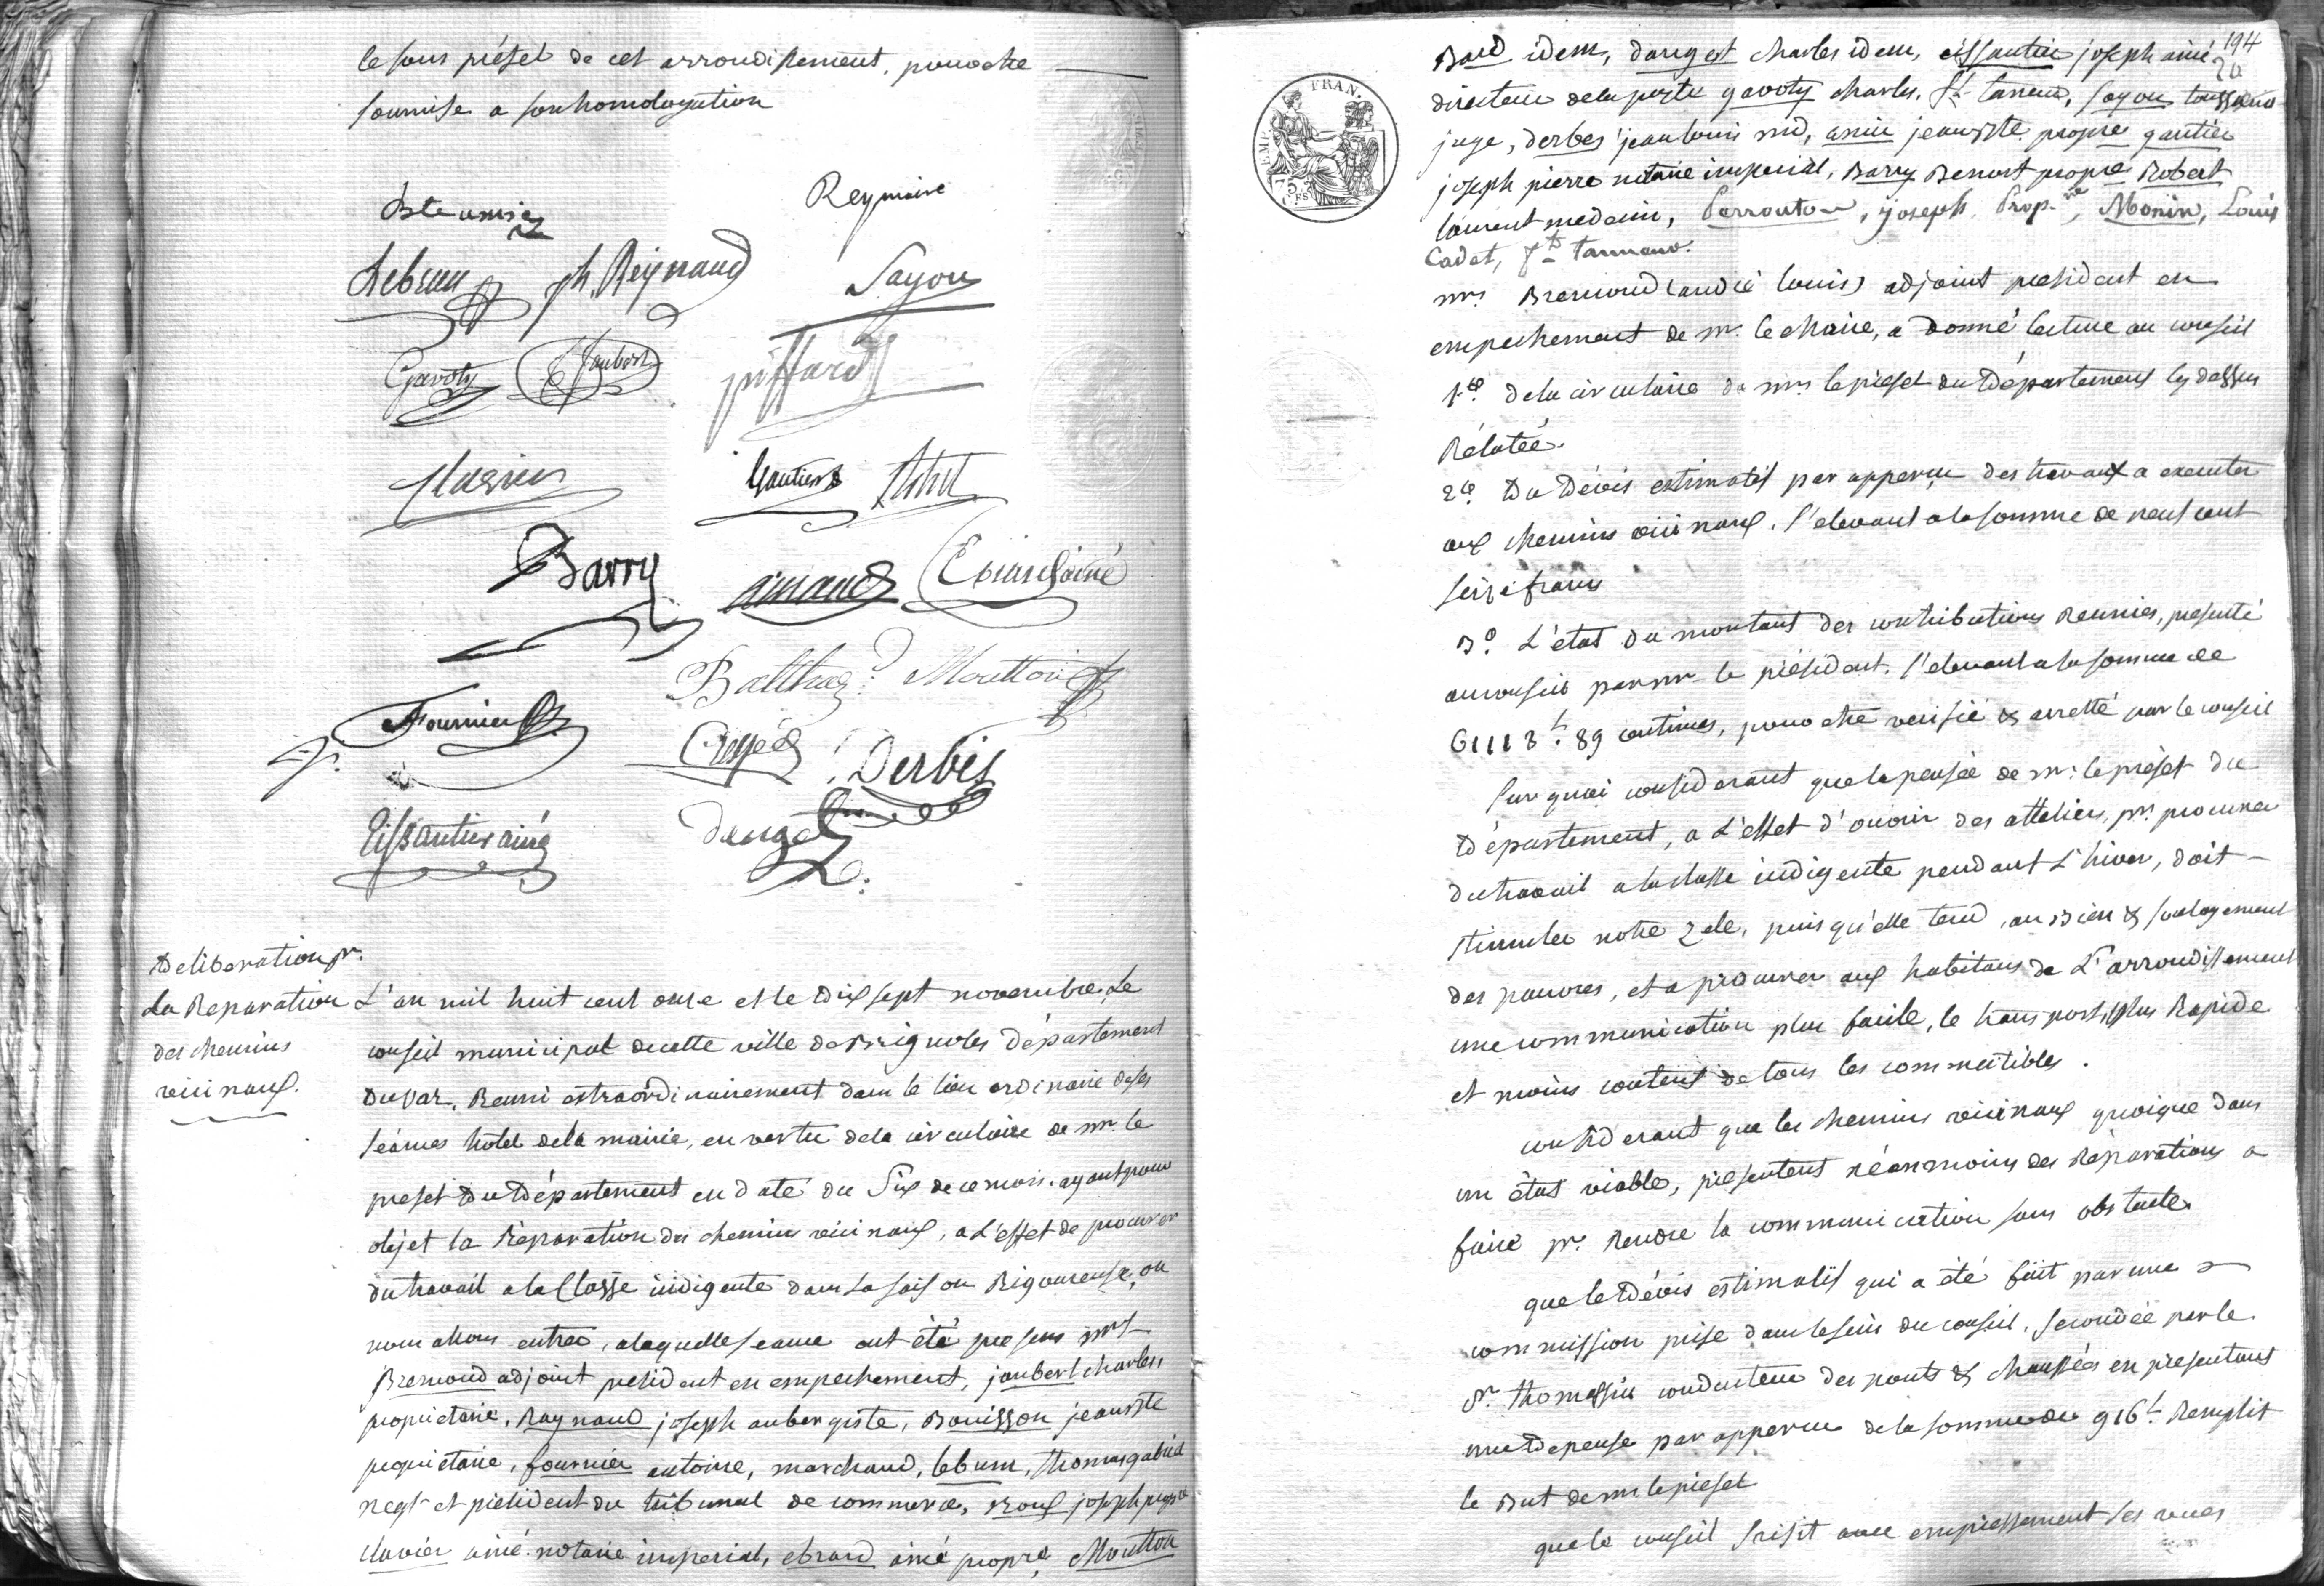 le sous préfet de cet arrondissement, pour etre
soumise a son homologation
Bte amic
Rey maire
Lebrun
jh. Reynaud
Sayou
Gavoty
Joubert
piffard
Gautier
Barry
amaud
Ebrard ainé
Balthaz.
Moutton
Fournier
Derbes
Eissautier ainé
dauget
Deliberation pr.
La Reparation
des chemins
vicinaux.
L'an mil huit cent onze et le dix sept novembre, Le
conseil municipal de cette ville de Brignoles Département
du Var, Reuni extraordinairement dans le lieu ordinaire de ses
séances hotel de la mairie, en vertu de la circulaire de mr. le
prefet du Département en date du Six de ce mois, ayant pour
objet la Réparation des chemins vicinaux, a L'effet de procurer
du travail a la Classe indigente dans La saison Rigoureuse, ou
nous allons entrer, a laquelle seance ont été presens mrs
Bremond adjoint president en empechement, joubert charles
proprietaire, Raynaud joseph aubergiste, Bouisson jean Bte
proprietaire, fournier antoine, marchand, lebrun, thomas gabriel
negt et président du tribunal de commerce, Roux joseph propre
clavier ainé notaire imperial, ebrard ainé propre, Moutton
194
20
FRAN.
EMP.
75
Baud idem, dauget charles idem, eissautier joseph ainé
directeur de la poste gavoty charles, ft tanneur, sayou toussaint
juge, derbes jean louis md, amic jean Bte propre gautier
joseph pierre notaire imperial, Barry Benoit propre Robert
laurent medecin, Perrouton, joseph, Propre, Monin, Louis
Cadet, ft tanneur.
mr. Bremond (andré louis) adjoint president en
empechement de mr. le Maire, a donné lecture au conseil
1o. de la circulaire de mr. le prefet du Département cy dessus
Rélatée.
2o. Du Dévis estimatif par apperçu des travaux a executer
aux chemins vicinaux, s'elevant a la somme de neuf cent
seize francs
3o. L'état du montant des contributions Reunies, presenté
au conseil par mr. le président, s'elevant a la somme de
61118 f. 89 centimes, pour etre verifié & arretté par le conseil
Sur quoi considerant que la pensée de mr. le préfet du
Département, a L'effet d'ouvrir des atteliers, pr. procurer
du travail a la classe indigente pendant L'hiver, doit
stimuler notre zele, puis qu'elle tend, au Bien & soulagement
des pauvres, et a procurer aux habitans de L'arrondissement
une communication plus facile, le transport plus Rapide
et moins couteux de tous les commestibles.
considerant que les chemins vicinaux quoique dans
un état viable, présentent néanmoins des Réparations a
faire pr. Rendre la communication sans obstacle.
que le Dévis estimatif qui a été fait par une
commission prise dans le sein du conseil, secondée par le
Sr. thomassin conducteur des ponts & chaussées en presentant
une Depense par apperçu de la somme de 916 f. Remplit
le But de mr le prefet
que le conseil saisit avec empressement les vues